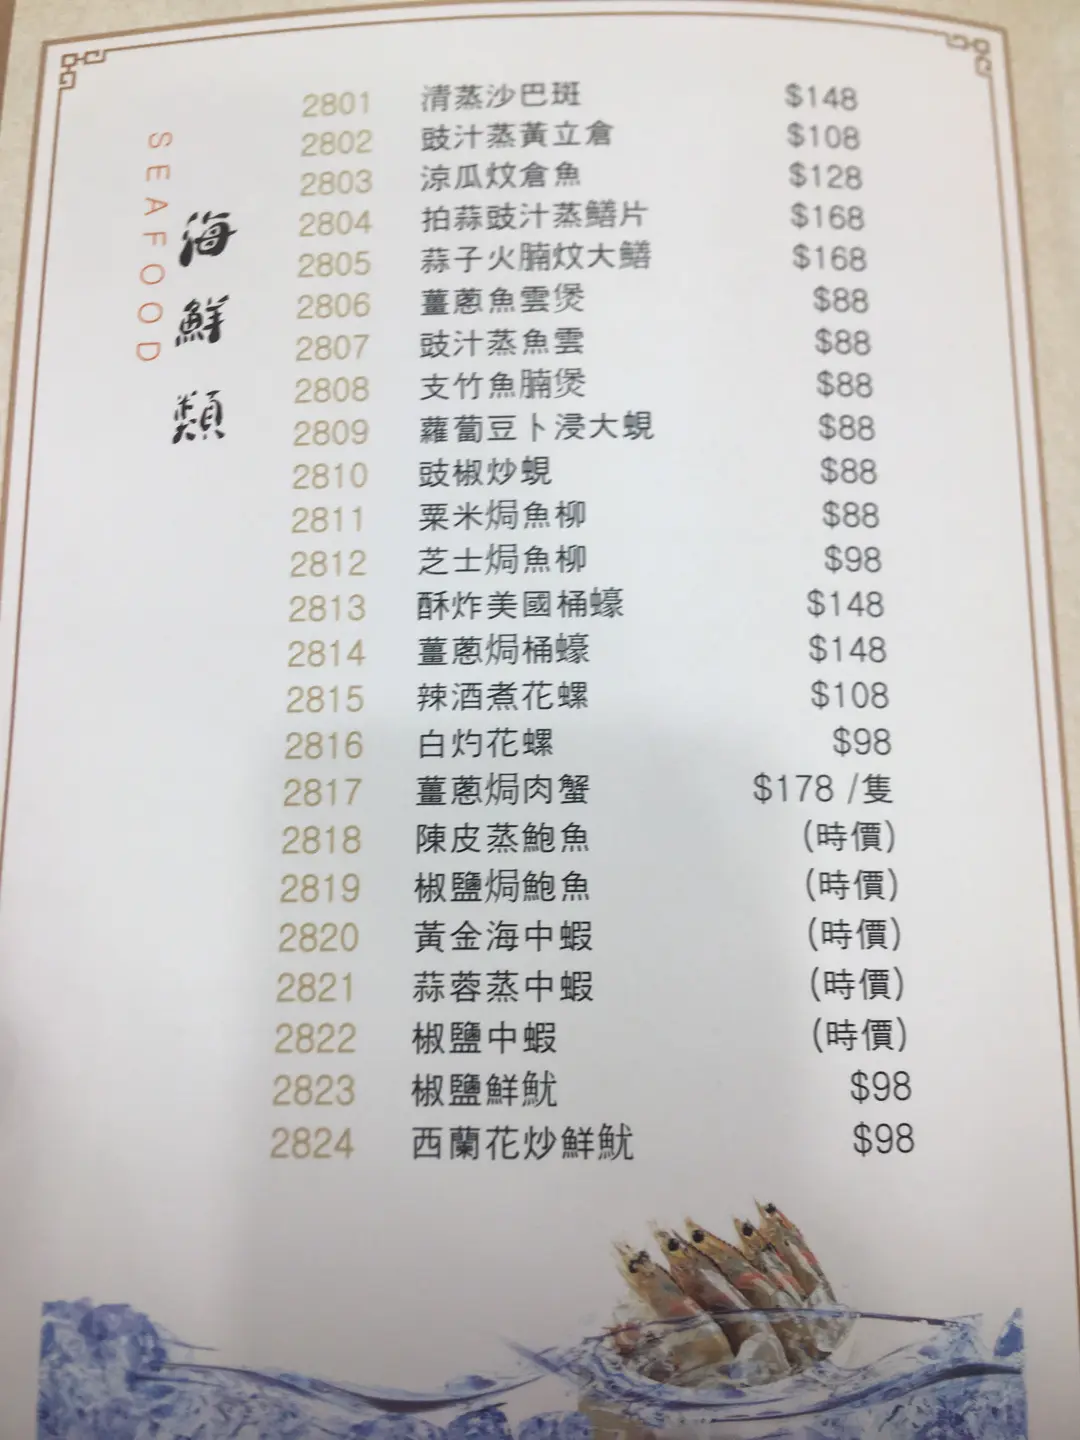 SEAFOOD
海鮮類
2801 清蒸沙巴斑 $148
2802 豉汁蒸黃立倉 $108
2803 涼瓜炆倉魚 $128
2804 拍蒜豉汁蒸鱔片 $168
2805 蒜子火腩炆大鱔 $168
2806 薑蔥魚雲煲 $88
2807 豉汁蒸魚雲 $88
2808 支竹魚腩煲 $88
2809 蘿蔔豆卜浸大蜆 $88
2810 豉椒炒蜆 $88
2811 粟米焗魚柳 $88
2812 芝士焗魚柳 $98
2813 酥炸美國桶蠔 $148
2814 薑蔥焗桶蠔 $148
2815 辣酒煮花螺 $108
2816 白灼花螺 $98
2817 薑蔥焗肉蟹 $178 /隻
2818 陳皮蒸鮑魚 (時價)
2819 椒鹽焗鮑魚 (時價)
2820 黃金海中蝦 (時價)
2821 蒜蓉蒸中蝦 (時價)
2822 椒鹽中蝦 (時價)
2823 椒鹽鮮魷 $98
2824 西蘭花炒鮮魷 $98